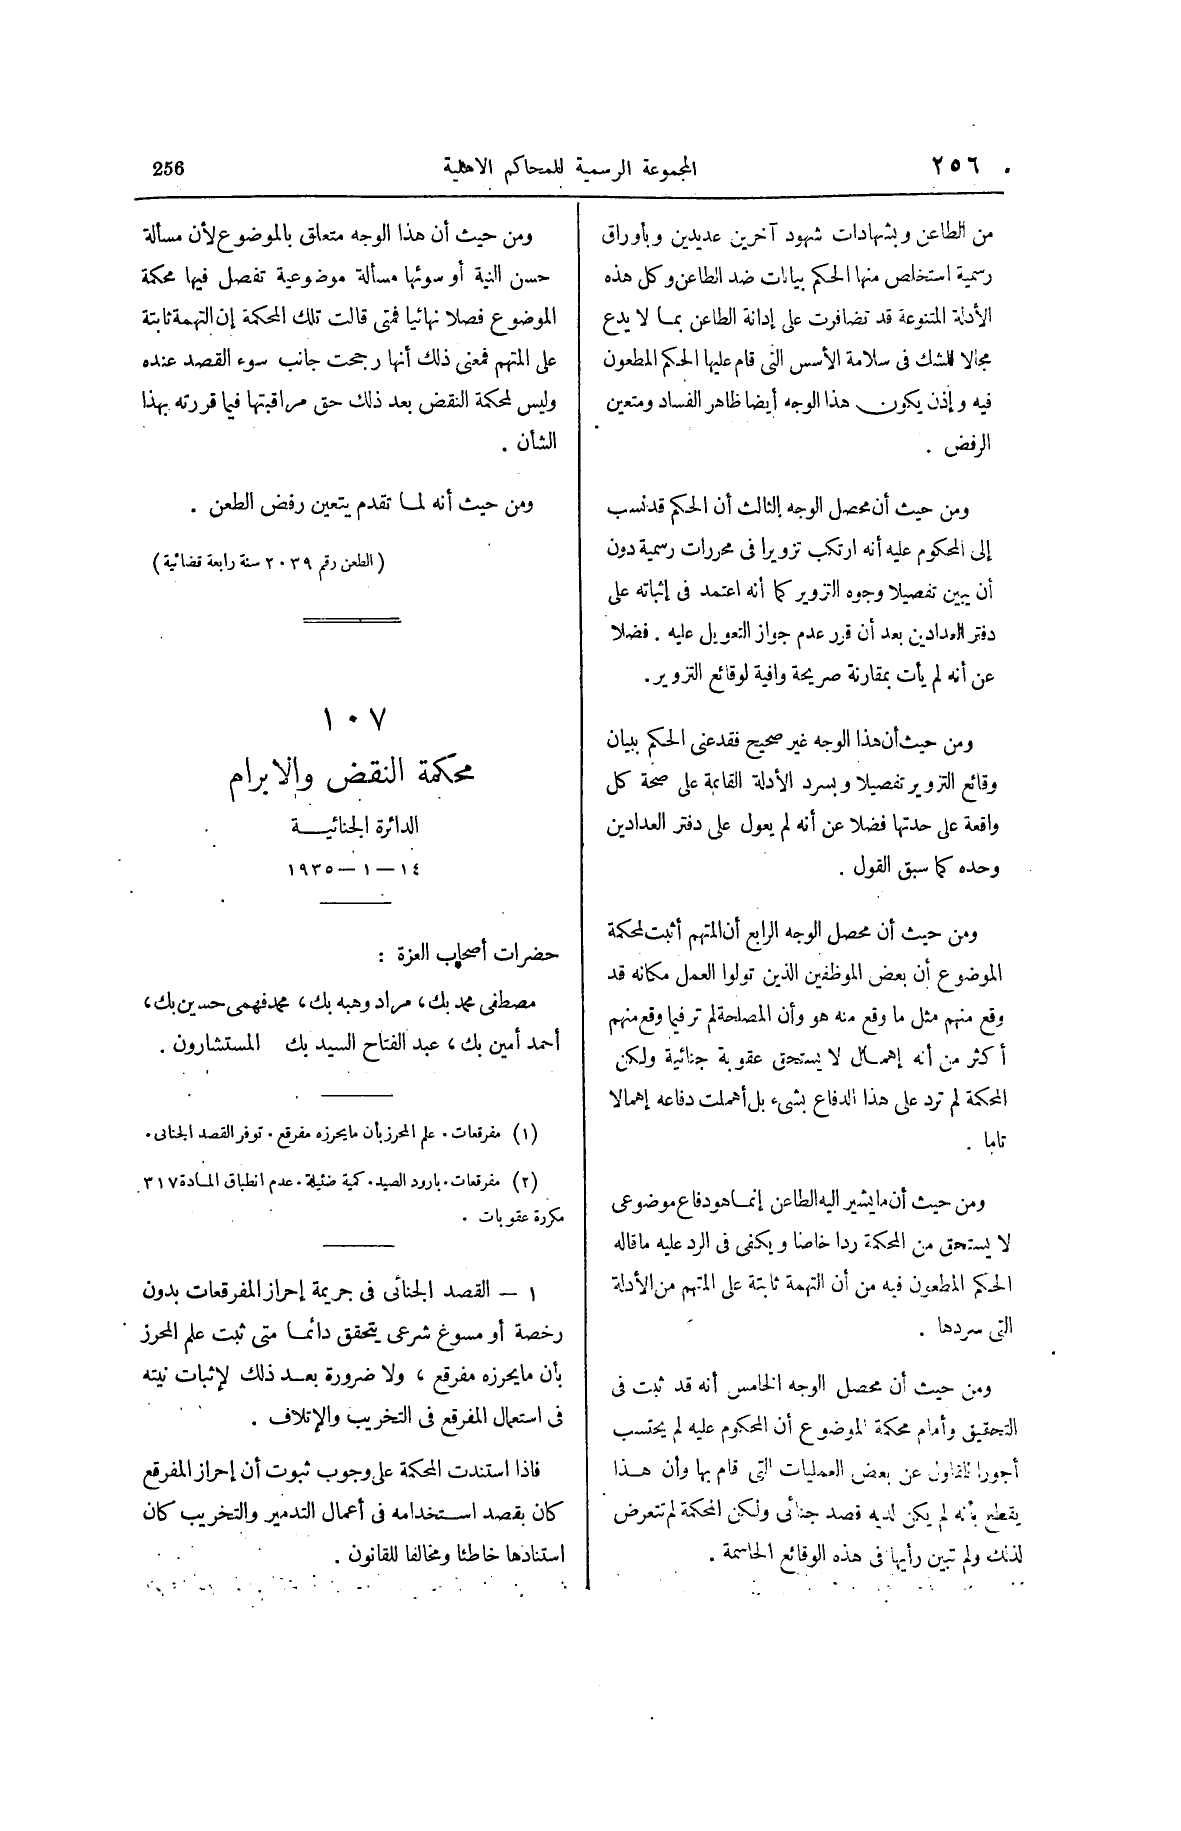 ٢٥٦
المجموعة الرسمية للمحاكم الأهلية
256
من الطاعن وبشهادات شهود آخرين عديدين وبأوراق
رسمية استخلص منها الحكم بيانات ضد الطاعن وكل هذه
الأدلة المتنوعة قد تضافرت على إدانة الطاعن بما لا يدع
مجالا للشك فى سلامة الأسس التى قام عليها الحكم المطعون
فيه وإذن يكون هذا الوجه أيضا ظاهر الفساد ومتعين
الرفض .
ومن حيث أن محصل الوجه الثالث أن الحكم قد نسب
إلى المحكوم عليه أنه ارتكب تزويرا فى محررات رسمية دون
أن يبين تفصيلا وجوه التزوير كما أنه اعتمد فى إثباته على
دفتر العدادين بعد أن قرر عدم جواز التعويل عليه . فضلا
عن أنه لم يأت بمقارنة صريحة وافية لوقائع التزوير .
ومن حيث أن هذا الوجه غير صحيح فقد عنى الحكم ببيان
وقائع التزوير تفصيلا وبسرد الأدلة القائمة على صحة كل
واقعة على حدتها فضلا عن أنه لم يعول على دفتر العدادين
وحده كما سبق القول .
ومن حيث أن محصل الوجه الرابع أن المتهم أثبت لمحكمة
الموضوع أن بعض الموظفين الذين تولوا العمل مكانه قد
وقع منهم مثل ما وقع منه هو وأن المصلحة لم تر فيما وقع منهم
أكثر من أنه إهمال لا يستحق عقوبة جنائية ولكن
المحكمة لم ترد على هذا الدفاع بشىء بل أهملت دفاعه إهمالا
تاما .
ومن حيث أن ما يشير اليه الطاعن إنما هو دفاع موضوعى
لا يستحق من المحكمة ردا خاصا ويكفى فى الرد عليه ما قاله
الحكم المطعون فيه من أن التهمة ثابتة على المتهم من الأدلة
التى سردها .
ومن حيث أن محصل الوجه الخامس أنه قد ثبت فى
التحقيق وأمام محكمة الموضوع أن المحكوم عليه لم يحتسب
أجورا للمقاول عن بعض العمليات التى قام بها وأن هذا
يقطع بأنه لم يكن لديه قصد جنائى ولكن المحكمة لم تتعرض
لذلك ولم تبين رأيها فى هذه الوقائع الحاسمة .
ومن حيث أن هذا الوجه متعلق بالموضوع لأن مسألة
حسن النية أو سوئها مسألة موضوعية تفصل فيها محكمة
الموضوع فصلا نهائيا فمتى قالت تلك المحكمة إن التهمة ثابتة
على المتهم فمعنى ذلك أنها رجحت جانب سوء القصد عنده
وليس لمحكمة النقض بعد ذلك حق مراقبتها فيما قررته بهذا
الشأن .
ومن حيث أنه لما تقدم يتعين رفض الطعن .
( الطعن رقم ٢٠٣٩ سنة رابعة قضائية )
١٠٧
محكمة النقض والإبرام
الدائرة الجنائية
١٤ – ١ – ١٩٣٥
حضرات أصحاب العزة :
مصطفى محمد بك ، مراد وهبه بك ، محمد فهمى حسين بك ،
أحمد أمين بك ، عبد الفتاح السيد بك المستشارون .
(١) مفرقعات . علم المحرز بأن ما يحرزه مفرقع . توفر القصد الجنائى .
(٢) مفرقعات . بارود الصيد . كمية ضئيلة . عدم انطباق المادة ٣١٧
مكررة عقوبات .
١ – القصد الجنائى فى جريمة إحراز المفرقعات بدون
رخصة أو مسوغ شرعى يتحقق دائما متى ثبت علم المحرز
بأن ما يحرزه مفرقع ، ولا ضرورة بعد ذلك لإثبات نيته
فى استعمال المفرقع فى التخريب والإتلاف .
فاذا استندت المحكمة على وجوب ثبوت أن إحراز المفرقع
كان بقصد استخدامه فى أعمال التدمير والتخريب كان
استنادها خاطئا ومخالفا للقانون .